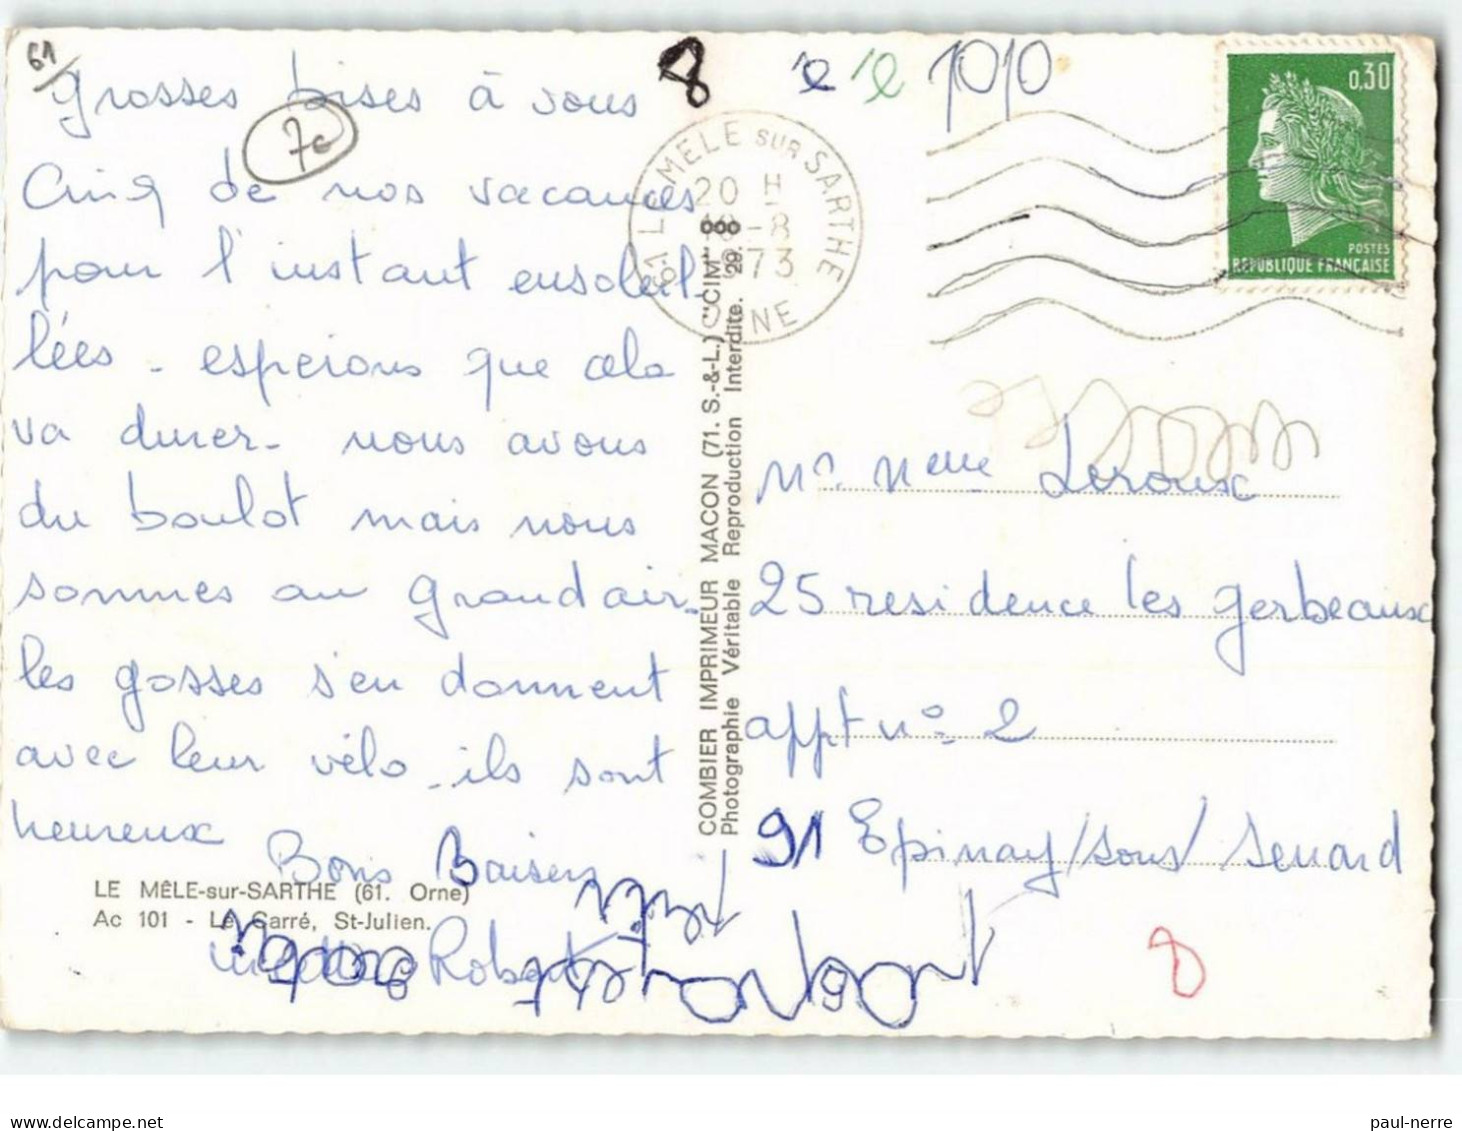 61
grosses bises à vous
7e
Cinq de nos vacances
pour l'instant ensoleil-
lées - esperons que cela
va durer - nous avons
du boulot mais nous
sommes au grand air -
les gosses s'en donnent
avec leur vélo - ils sont
heureux
Bons Baisers
LE MÊLE-sur-SARTHE (61. Orne)
Ac 101 - Le Carré, St-Julien.
Robert
COMBIER IMPRIMEUR MACON (71. S.-&-L.) "CIM"
Photographie Véritable Reproduction Interdite.
8
61 LE MELE SUR SARTHE
20 H
-8
1973
ORNE
0,30
POSTES
REPUBLIQUE FRANÇAISE
Mr Meme Leroux
25 residence les gerbeaux
appt n° 2
91 Epinay/sous/Senard
8
paul-nerre